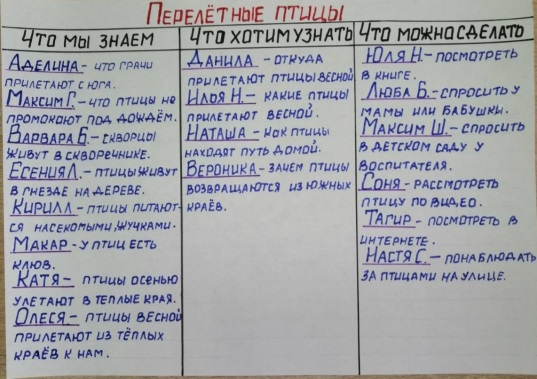 Перелётные птицы
Что мы знаем
Аделина - что грачи
прилетают с юга.
Максим Г. - что птицы не
промокают под дождём.
Варвара Б. - скворцы
живут в скворечнике.
Есения Л. - птицы живут
в гнезде на дереве.
Кирилл - птицы питают-
ся насекомыми, жучками.
Макар - у птиц есть
клюв.
Катя - птицы осенью
улетают в теплые края.
Олеся - птицы весной
прилетают из тёплых
краёв к нам.
Что хотим узнать
Данила - откуда
прилетают птицы весной
Илья Н. - какие птицы
прилетают весной.
Наташа - как птицы
находят путь домой.
Вероника - зачем птицы
возвращаются из южных
краёв.
Что можно сделать
Юля Н. - посмотреть
в книге.
Люба Б. - спросить у
мамы или бабушки.
Максим Ш. - спросить
в детском саду у
воспитателя.
Соня - рассмотреть
птицу по видео.
Тагир - посмотреть в
интернете.
Настя С. - понаблюдать
за птицами на улице.